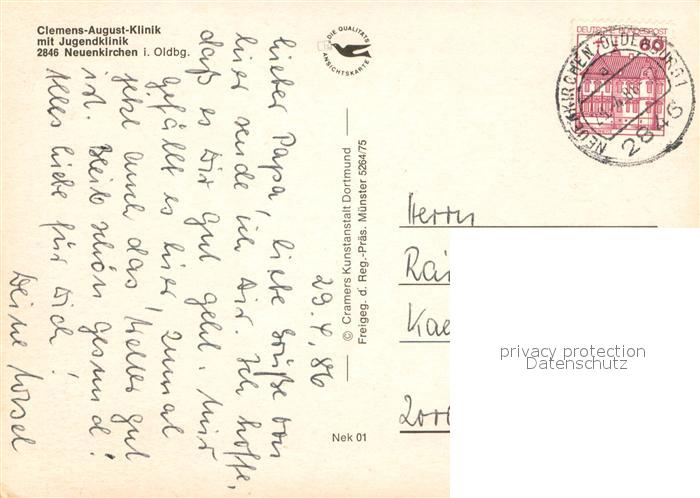 Clemens-August-Klinik
mit Jugendklinik
2846 Neuenkirchen i. Oldbg.
DIE QUALITÄTS
ANSICHTSKARTE
DEUTSCHE BUNDESPOST
60
NEUENKIRCHEN, OLDENBURG 1
2846
29.4.86
Lieber Papa, liebe Grüße von
hier sende ich Dir. Ich hoffe,
daß es Dir gut geht. Mir
gefällt es hier, zumal
jetzt auch das Wetter gut
ist. Bleib schön gesund!
Alles liebe für Dich!
Deine
© Cramers Kunstanstalt Dortmund
Freigeg. d. Reg.-Präs. Münster 5264/75
Nek 01
Herrn
privacy protection
Datenschutz